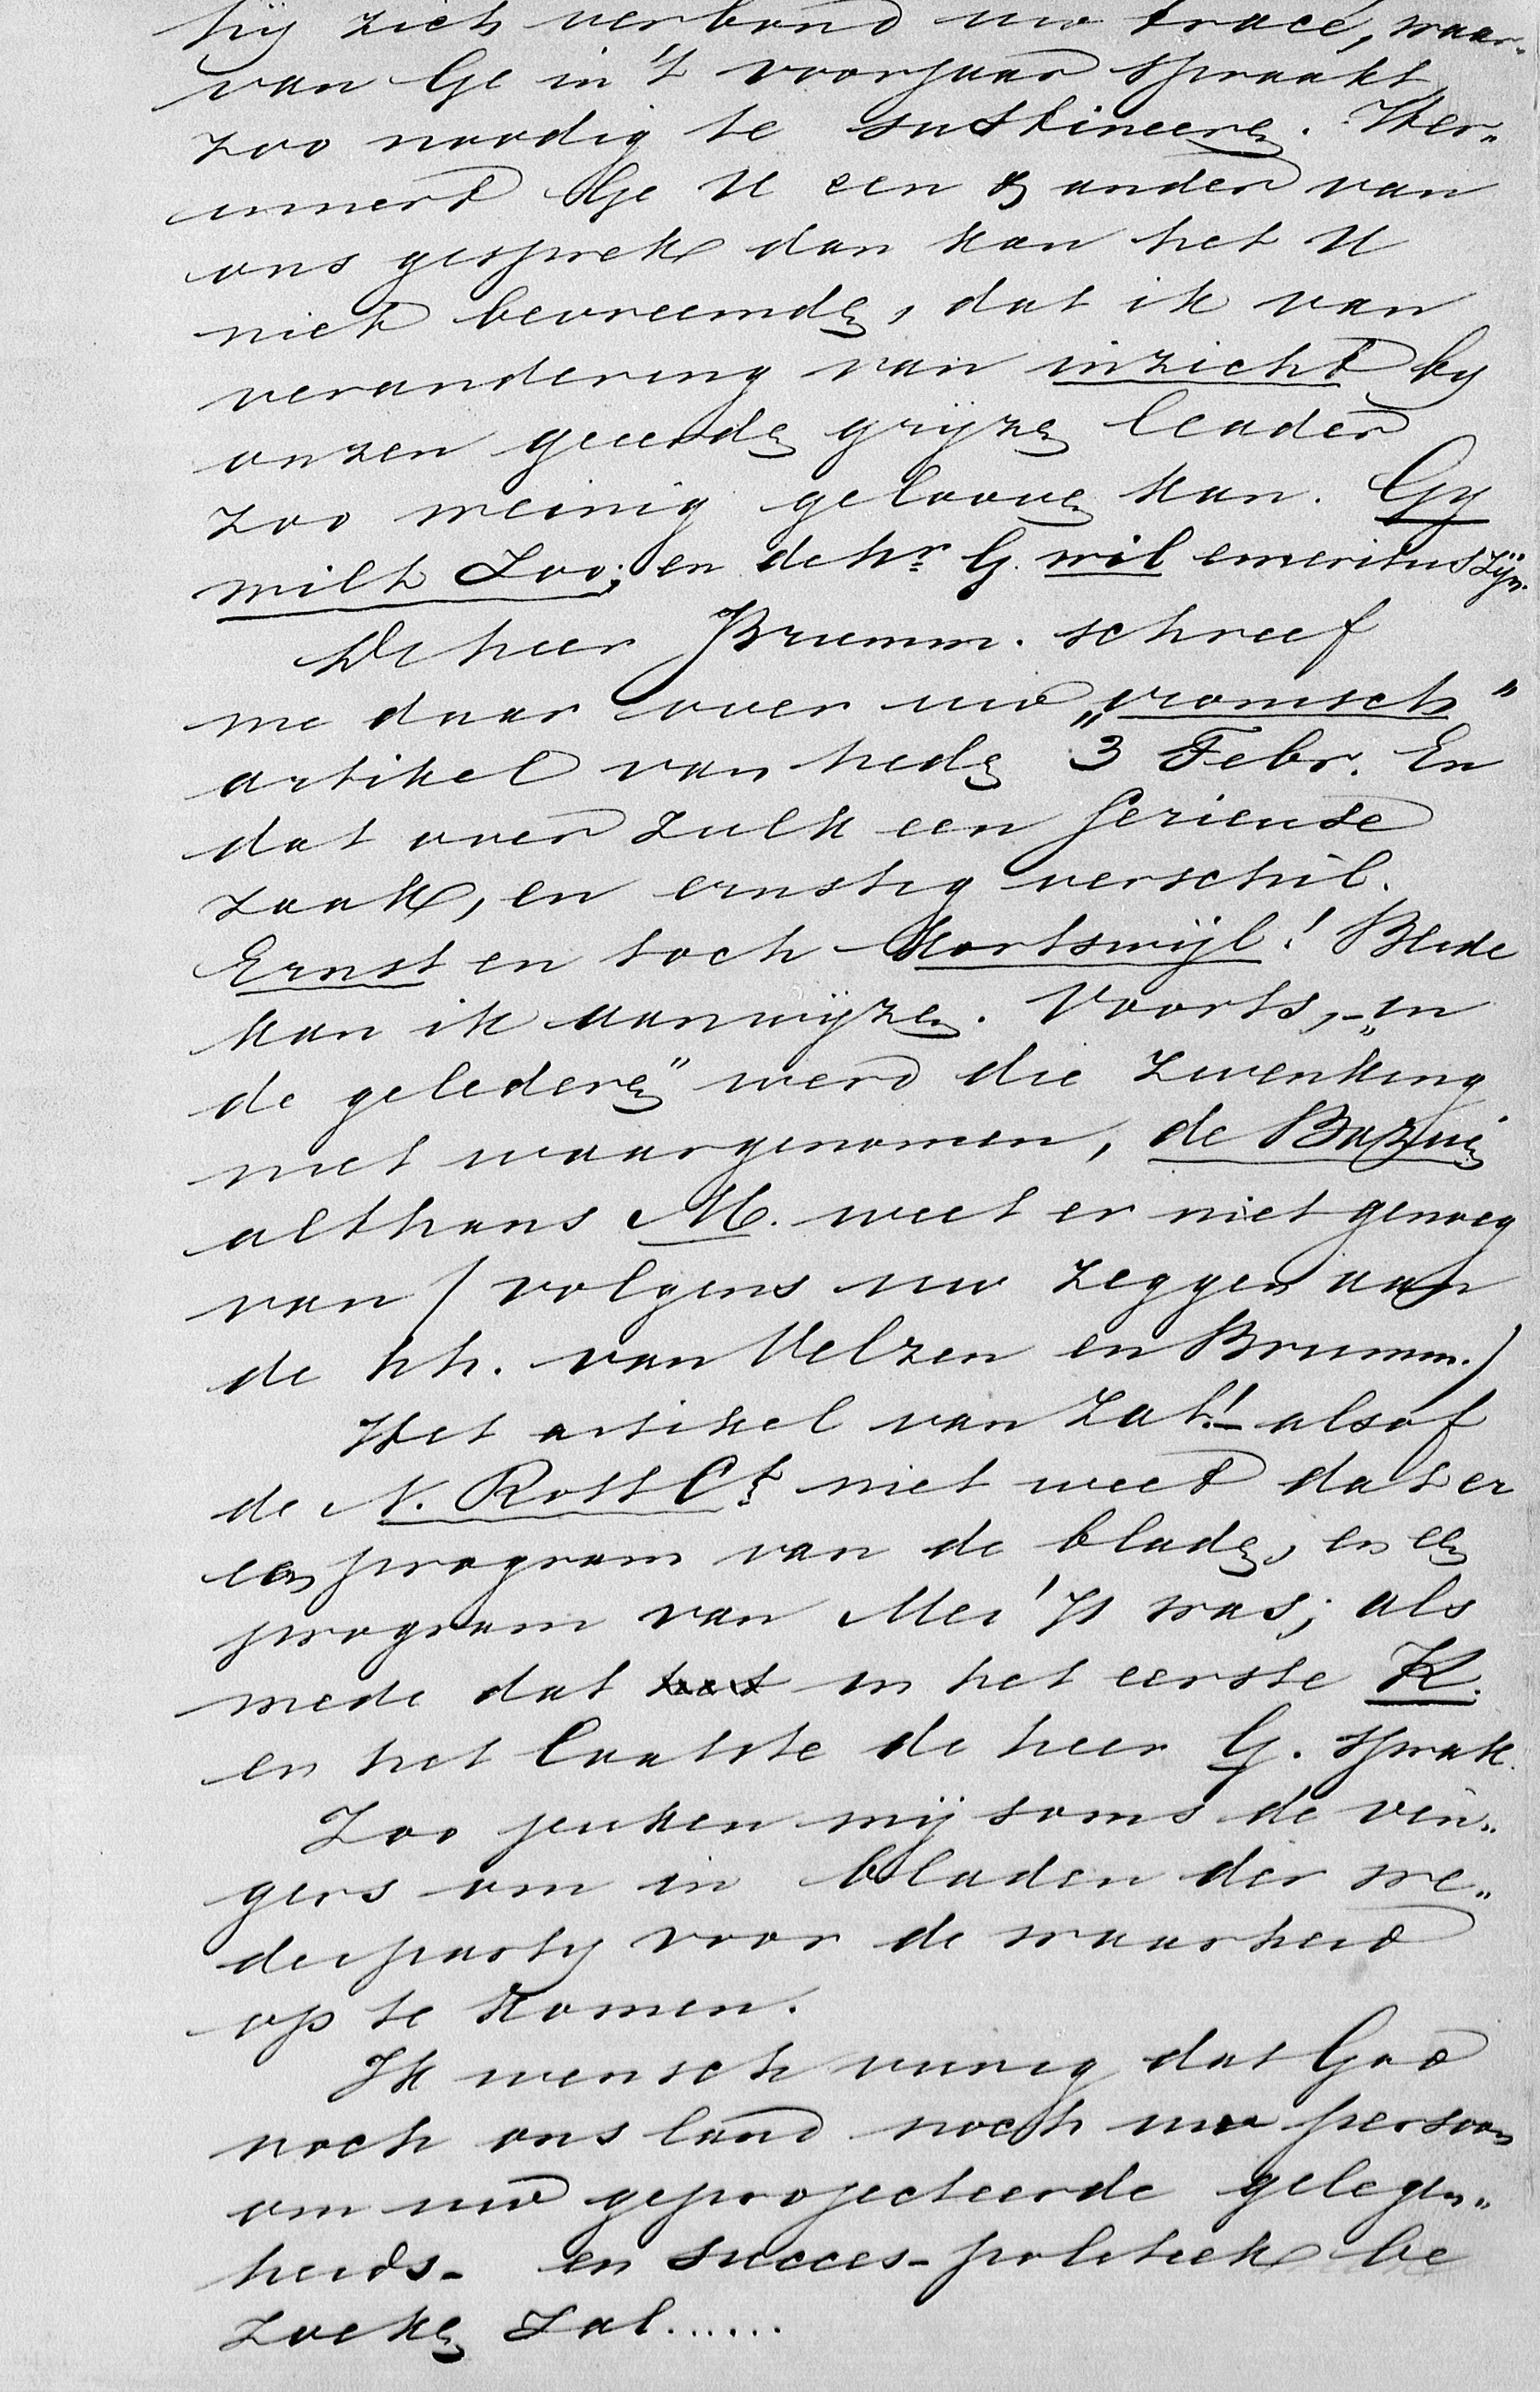 hij zich verbond uw tracé, waar-
van Ge in 't voorjaar spraakt,
zoo noodig te sustineeren. Her-
innert Ge U een & ander van
ons gesprek dan kan het U
niet bevreemden, dat ik van
verandering van inzicht by
onzen geeerden grijzen leader
zoo weinig gelooven kan. Gy
wilt zoo; en de hr. G. wil emeritus zijn.
De heer Brumm. schreef
me daar over uw „ironisch"
artikel van heden 3 Febr. En
dat over zulk een serieuse
zaak, en ernstig verschil.
Ernst en toch Kortswijl! Beide
kan ik aanwijzen. Voorts, - „in
de gelederen" werd die zwenking
niet waargenomen, de Bazuin
althans M. weet er niet genoeg
van (volgens uw zeggen aan
de hh. van Velzen en Brumm.)
Het artikel van Zat.! - alsof
de N. Rott Ct niet weet dat er
een program van de bladen, en een
program van Mei was; als
mede dat in het eerste K.
en het laatste de heer G. sprak.
Zoo jeuken mij soms de vin-
gers om in bladen der we-
derparty voor de waarheid
op te komen.
Ik wensch vurig dat God
noch ons land noch uw persoon
om uw geprojecteerde gelegen-
heids- en succes-politiek be
zoeken zal......